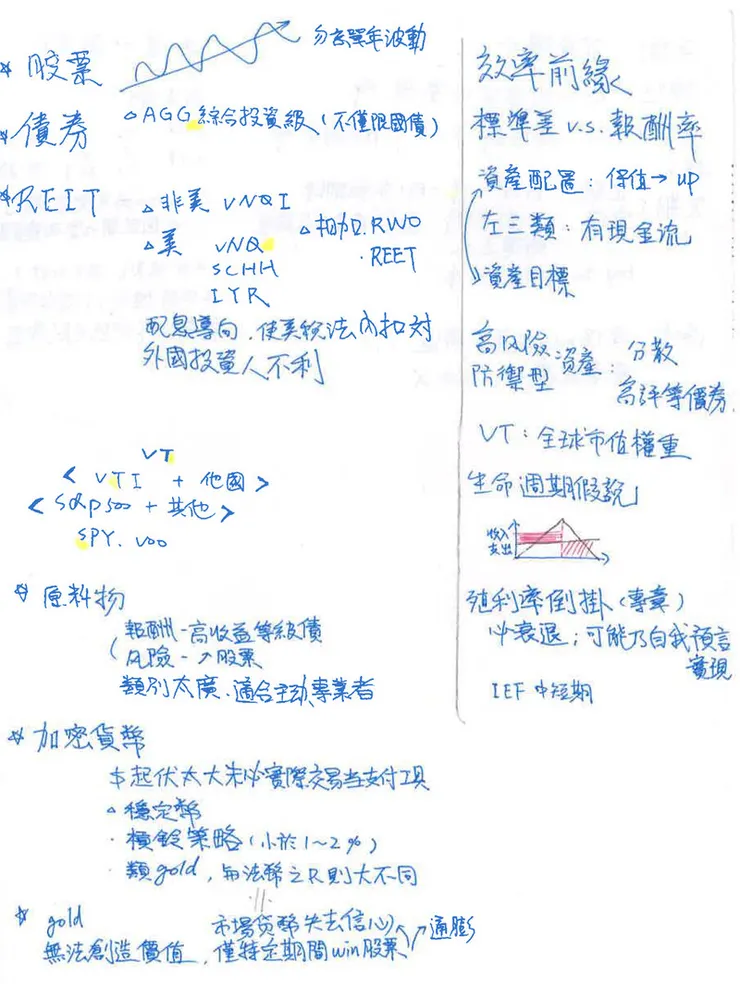 ☆ 股票 分割單年波動
☆ 債券 △AGG 綜合投資級(不僅限國債)
☆ REIT △非美 VNQI
△美 VNQ △相加.RWO
SCHH ·REET
IYR
配息導向,使美稅法內扣對
外國投資人不利
VT
< VTI + 他國 >
< S&P500 + 其他 >
SPY. VOO
☆ 原料物
報酬-高收益等級債
風險-↗股票
類別太廣、適合主動專業者
☆ 加密貨幣
$起伏太大未必實際交易當支付工具
△ 穩定幣
· 槓鈴策略(小於1~2%)
· 類gold,與法幣之R則大不同
☆ gold 市場貨幣失去信心 通膨
無法創造價值,僅特定期間win股票
效率前緣
標準差 v.s. 報酬率
資產配置:保值→up
左三類:有現金流
資產目標
高風險 資產:分散
防禦型 高評等債券.
VT:全球市值權重
生命週期假說」
收入
支出
殖利率倒掛(專章)
必衰退;可能乃自我預言
實現
IEF 中短期